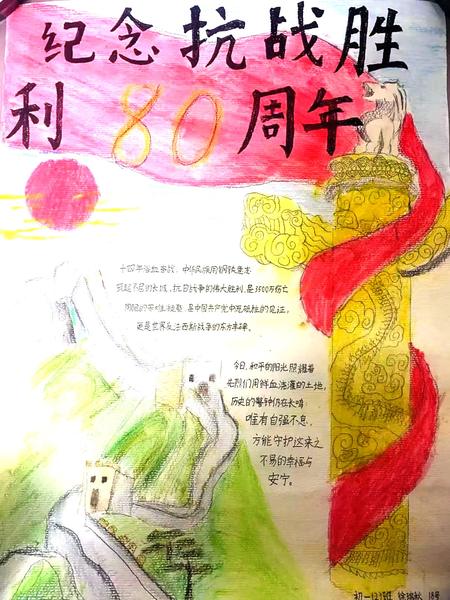 纪念抗战胜
利80周年
十四年浴血奋战，中华民族用钢铁意志
筑起不屈的长城，抗日战争的伟大胜利，是3500万伤亡
同胞的英雄挽歌，是中国共产党中流砥柱的见证，
更是世界反法西斯战争的东方丰碑。
今日，和平的阳光照耀着
先烈们用鲜血浇灌的土地，
历史的警钟仍在长鸣
唯有自强不息，
方能守护这来之
不易的幸福与
安宁。
初一(2)班 徐 18号